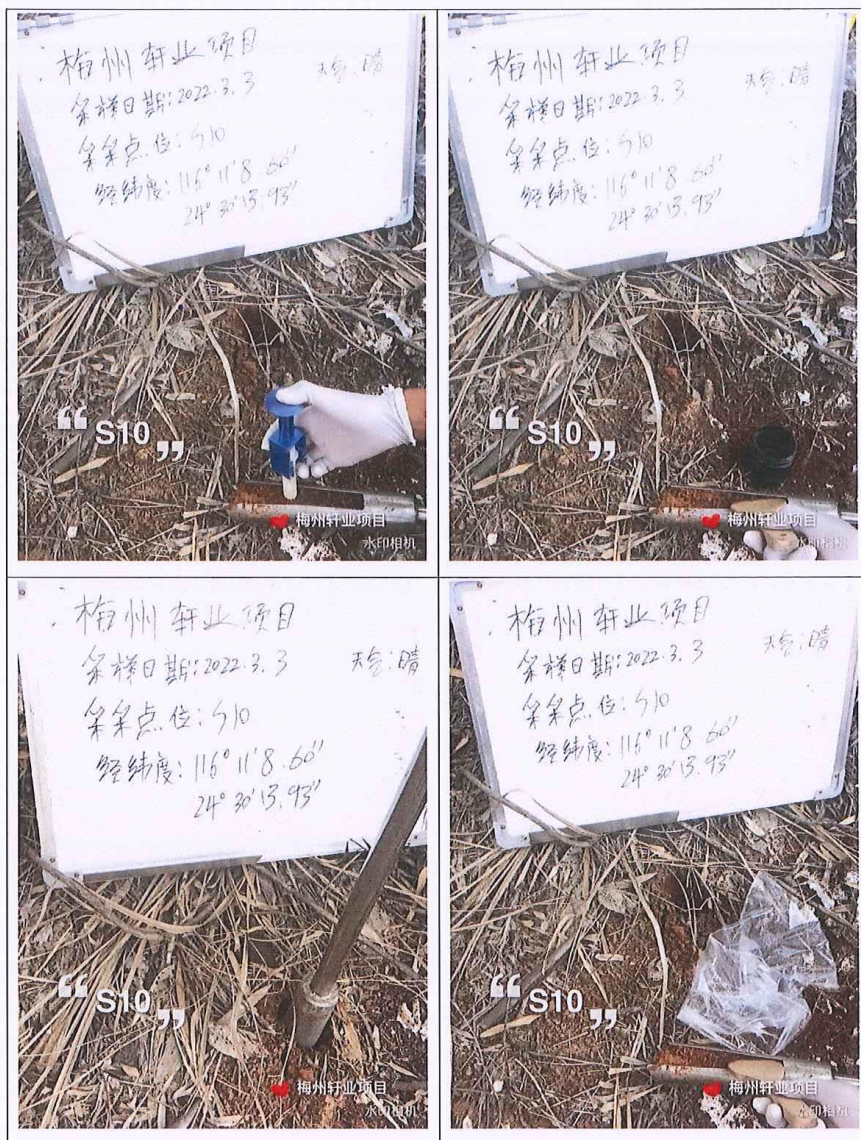 梅州轩业项目
采样日期:2022.3.3 天气:晴
采集点位:S10
经纬度:116° 11' 8.60"
24° 30' 13.93"
“ S10 ”
梅州轩业项目
水印相机
梅州轩业项目
采样日期:2022.3.3 天气:晴
采集点位:S10
经纬度:116° 11' 8.60"
24° 30' 13.93"
“ S10 ”
梅州轩业项目
水印相机
梅州轩业项目
采样日期:2022.3.3 天气:晴
采集点位:S10
经纬度:116° 11' 8.60"
24° 30' 13.93"
“ S10 ”
梅州轩业项目
水印相机
梅州轩业项目
采样日期:2022.3.3 天气:晴
采集点位:S10
经纬度:116° 11' 8.60"
24° 30' 13.93"
“ S10 ”
梅州轩业项目
水印相机